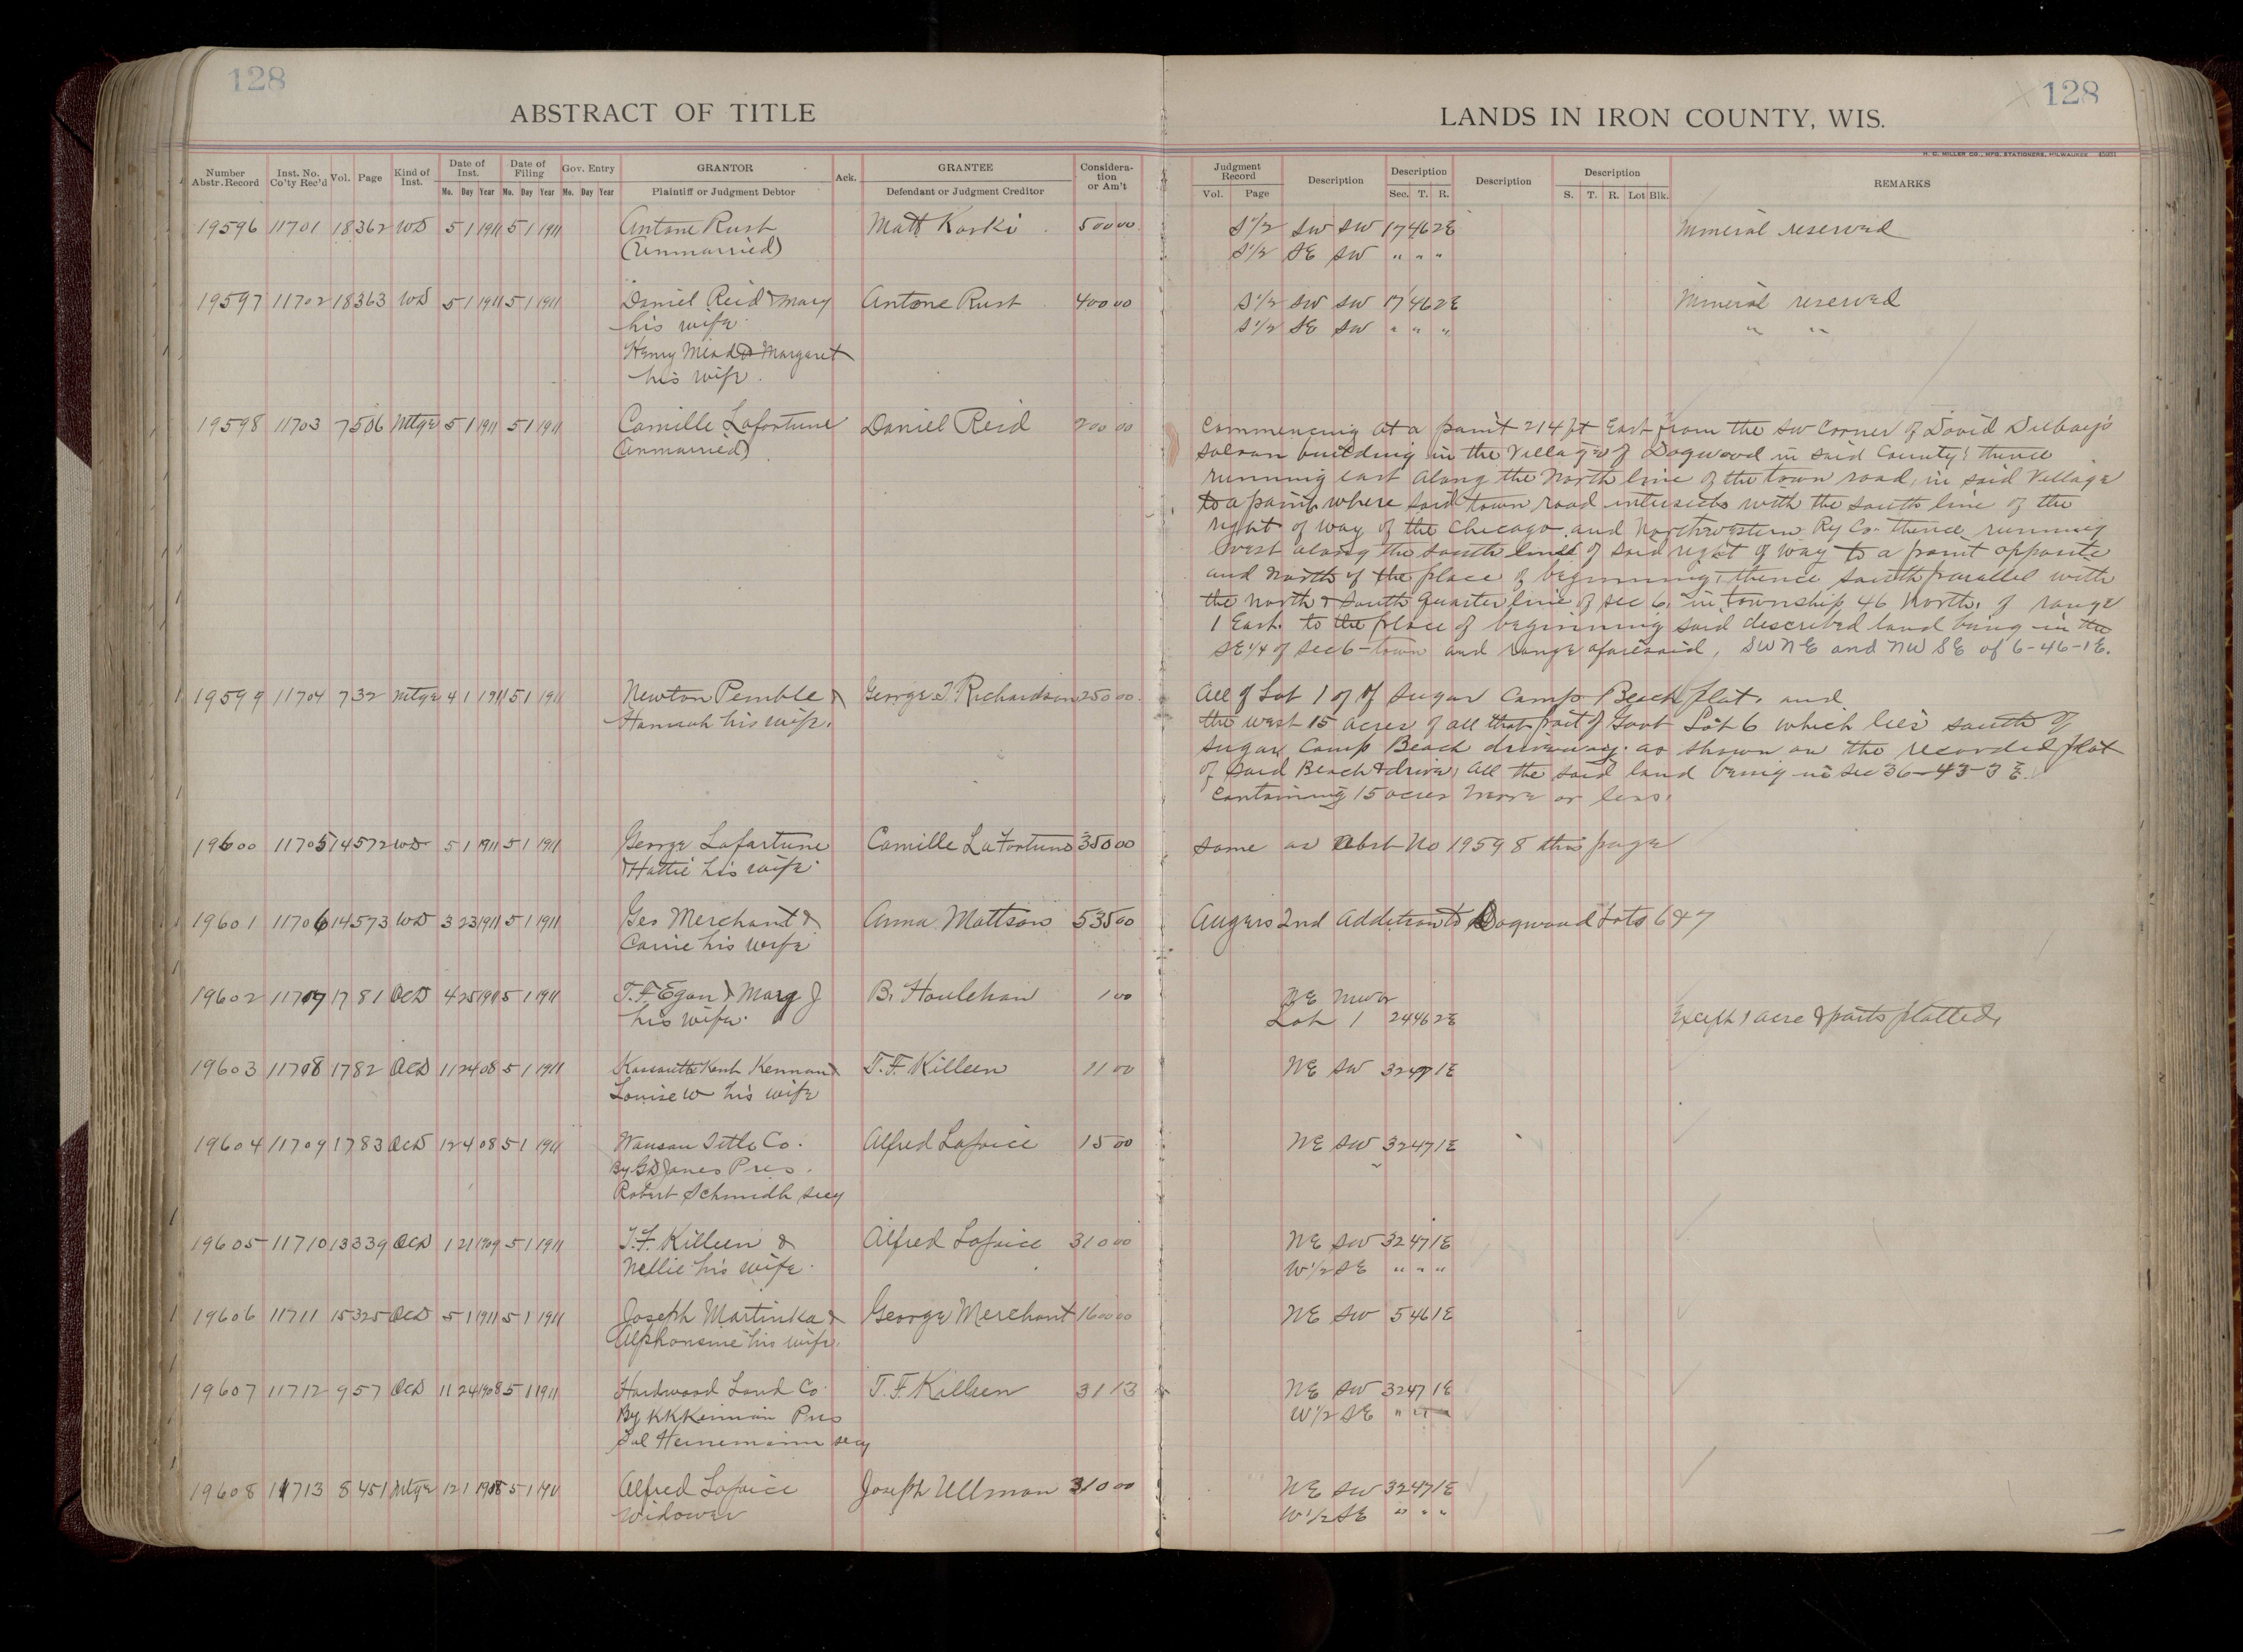 128
128
ABSTRACT OF TITLE
LANDS IN IRON COUNTY, WIS.
H. C. MILLER CO., MFG. STATIONERS, MILWAUKEE
Number Abstr. Record Inst. No. Co'ty Rec'd Vol. Page Kind of Inst. Date of Inst. Mo. Day Year Date of Filing Mo. Day Year Gov. Entry Mo. Day Year GRANTOR Plaintiff or Judgment Debtor Ack. GRANTEE Defendant or Judgment Creditor Consideration or Am't
Judgment Record Vol. Page Description Description Sec. T. R. Description Description S. T. R. Lot Blk. REMARKS
19596 11701 18 362 WD 5 1 1911 5 1 1911 Antone Rust Matt Koski 500 00 S 1/2 SW SW 17 46 2E Mineral reserved
(Unmarried) S 1/2 SE SW " " "
19597 11702 18 363 WD 5 1 1911 5 1 1911 Daniel Reid & Mary Antone Rust 400 00 S 1/2 SW SW 17 46 2E Mineral reserved
his wife S 1/2 SE SW " " " " "
Henry Mead & Margaret
his wife.
19598 11703 7 506 Mtge 5 1 1911 5 1 1911 Camille Lafortune Daniel Reid 200 00 Commencing at a point 214 ft East from the SW Corner of David
(Unmarried) Saloon building in the Village of Dogwood in said County; thence
running east along the North line of the town road, in said Village
to a point where said town road intersects with the south line of the
right of way of the Chicago and Northwestern Ry Co. thence running
west along the south line of said right of way to a point opposite
and North of the place of beginning, thence south parallel with
the North & South quarter line of sec 6, in township 46 North, of range
1 East. to the place of beginning said described land being in the
SE 1/4 of sec 6 - town and range aforesaid, SW NE and NW SE of 6-46-1E.
19599 11704 7 32 Mtge 4 1 1911 5 1 1911 Newton Pemble & George T. Richardson 250 00 All of Lot 1 of Sugar Camp Beach plat, and
Hannah his wife. the west 15 acres of all that part of Govt Lot 6 which lies south of
Sugar Camp Beach driveway as shown on the recorded plat
of said Beach & drive, all the said land being in sec 36-43-3 E.
Containing 15 acres more or less.
19600 11705 14 572 WD 5 1 1911 5 1 1911 George Lafortune Camille LaFortune 350 00 same as Abst No 19598 this page
& Hattie his wife
19601 11706 14 573 WD 3 23 1911 5 1 1911 Geo Merchant & Anna Mattson 535 00 Augers 2nd Addition to Dogwood Lots 6 & 7
Carrie his wife
19602 11707 17 81 QCD 4 25 1911 5 1 1911 T. F. Egan & Mary J B. Houlehan 1 00 NE
his wife. Lot 1 24 46 2E Except 1 acre & parts platted.
19603 11708 17 82 QCD 11 24 08 5 1 1911 Kent Kennan & T. F. Killeen 11 00 NE SW 32 47 1E
Louise W his wife
19604 11709 17 83 QCD 12 4 08 5 1 1911 Wausau Title Co. Alfred Lafoice 15 00 NE SW 32 47 1E
By GD Jones Pres.
Robert Schmidt secy
19605 11710 13 339 QCD 1 21 1909 5 1 1911 T. F. Killeen & Alfred Lafoice 310 00 NE SW 32 47 1E
Nellie his wife. W 1/2 SE " " "
19606 11711 15 325 QCD 5 1 1911 5 1 1911 Joseph Martinka & George Merchant 1600 00 NE SW 5 46 1E
Alphonsine his wife.
19607 11712 9 57 QCD 11 24 1908 5 1 1911 Hardwood Land Co. T. F. Killeen 31 13 NE SW 32 47 1E
By KK Kennan Pres W 1/2 SE " " "
Sol Heinemann secy
19608 11713 8 451 Mtge 12 1 1908 5 1 1911 Alfred Lafoice Joseph Ullman 310 00 NE SW 32 47 1E
Widower W 1/2 SE " " "